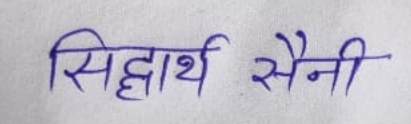 सिद्धार्थ सैनी